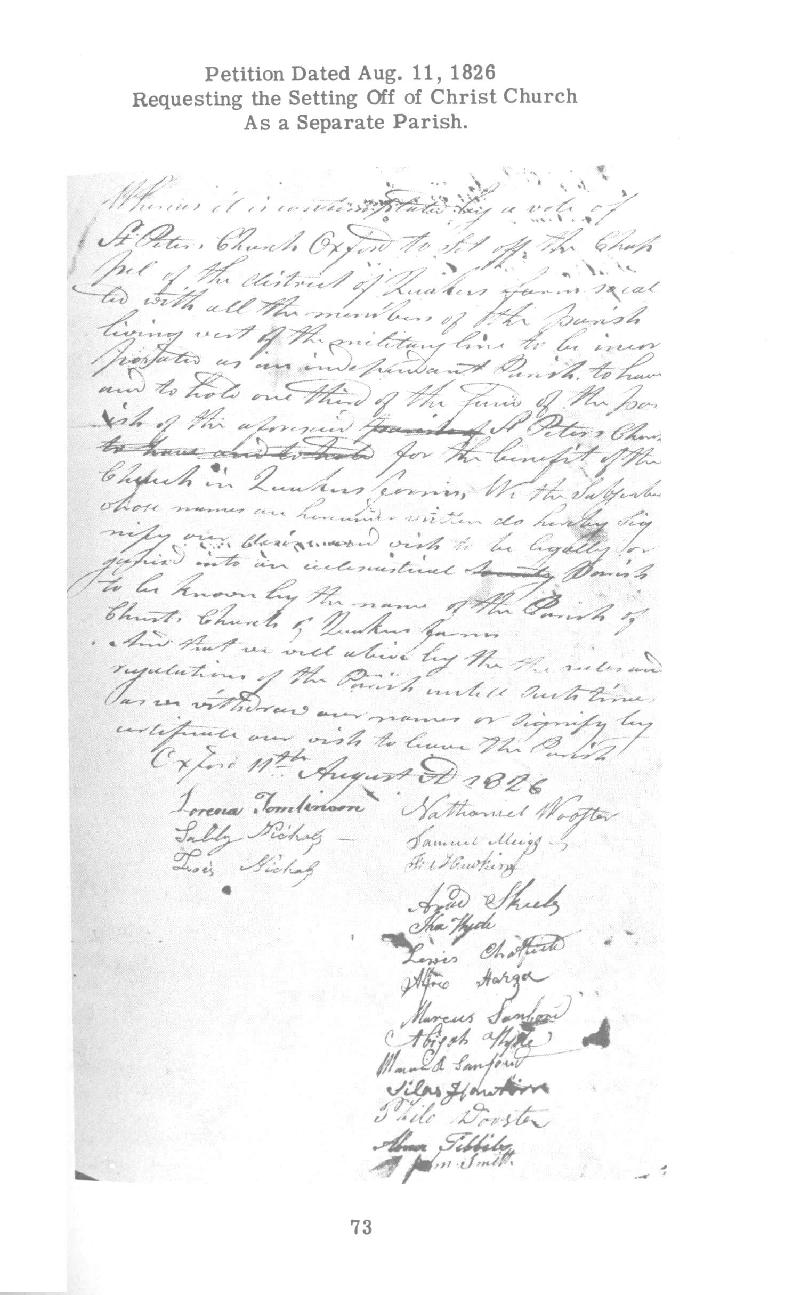 Petition Dated Aug. 11, 1826
Requesting the Setting Off of Christ Church
As a Separate Parish.
Whereas it is contemplated by a vote of
St. Peters Church Oxford to set off the Chap
pel of the district of Quakers farms
ted with all the members of the parish
living west of the military line to be incor
porated as an independant Parish, to have
and to hold one third of the fund of the par
ish of the aforesaid parish of St Peters Church
to have and to hold for the benefit of the
Church in Quakers farms, We the Subscribe
whose names are hereunder written do hereby sig
nify our desire and wish to be legally or
ganised into an eclesiastical Society Parish
to be known by the name of the Parish of
Christs Church of Quakers farms
And that we will abide by the the rules and
regulations of the Parish untill such time
as we withdraw our names or signify by
certificate our wish to leave the Parish
Oxford 11th August AD 1826
Lorena Tomlinson Nathaniel Wooster
Sally Nichols Samuel Meigs
Lois Nichols Hawkins
Ira Hyde
Lewis Chatfield
Harger
Marcus Sanford
Abijah Hyde
Sanford
Silas Hawkins
Philo Wooster
Abner Tibbils
Smith
73